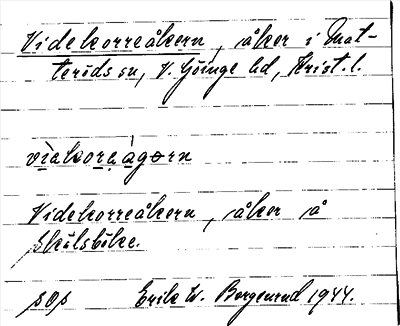 Videkorreåkern, åker i Mat-
teröds sn, V. Göinge hd, Krist. l.
vìakoreágørn
Videkorreåkern, åker å
Skälsböke.
søs Erik W. Bergenrud 1944.